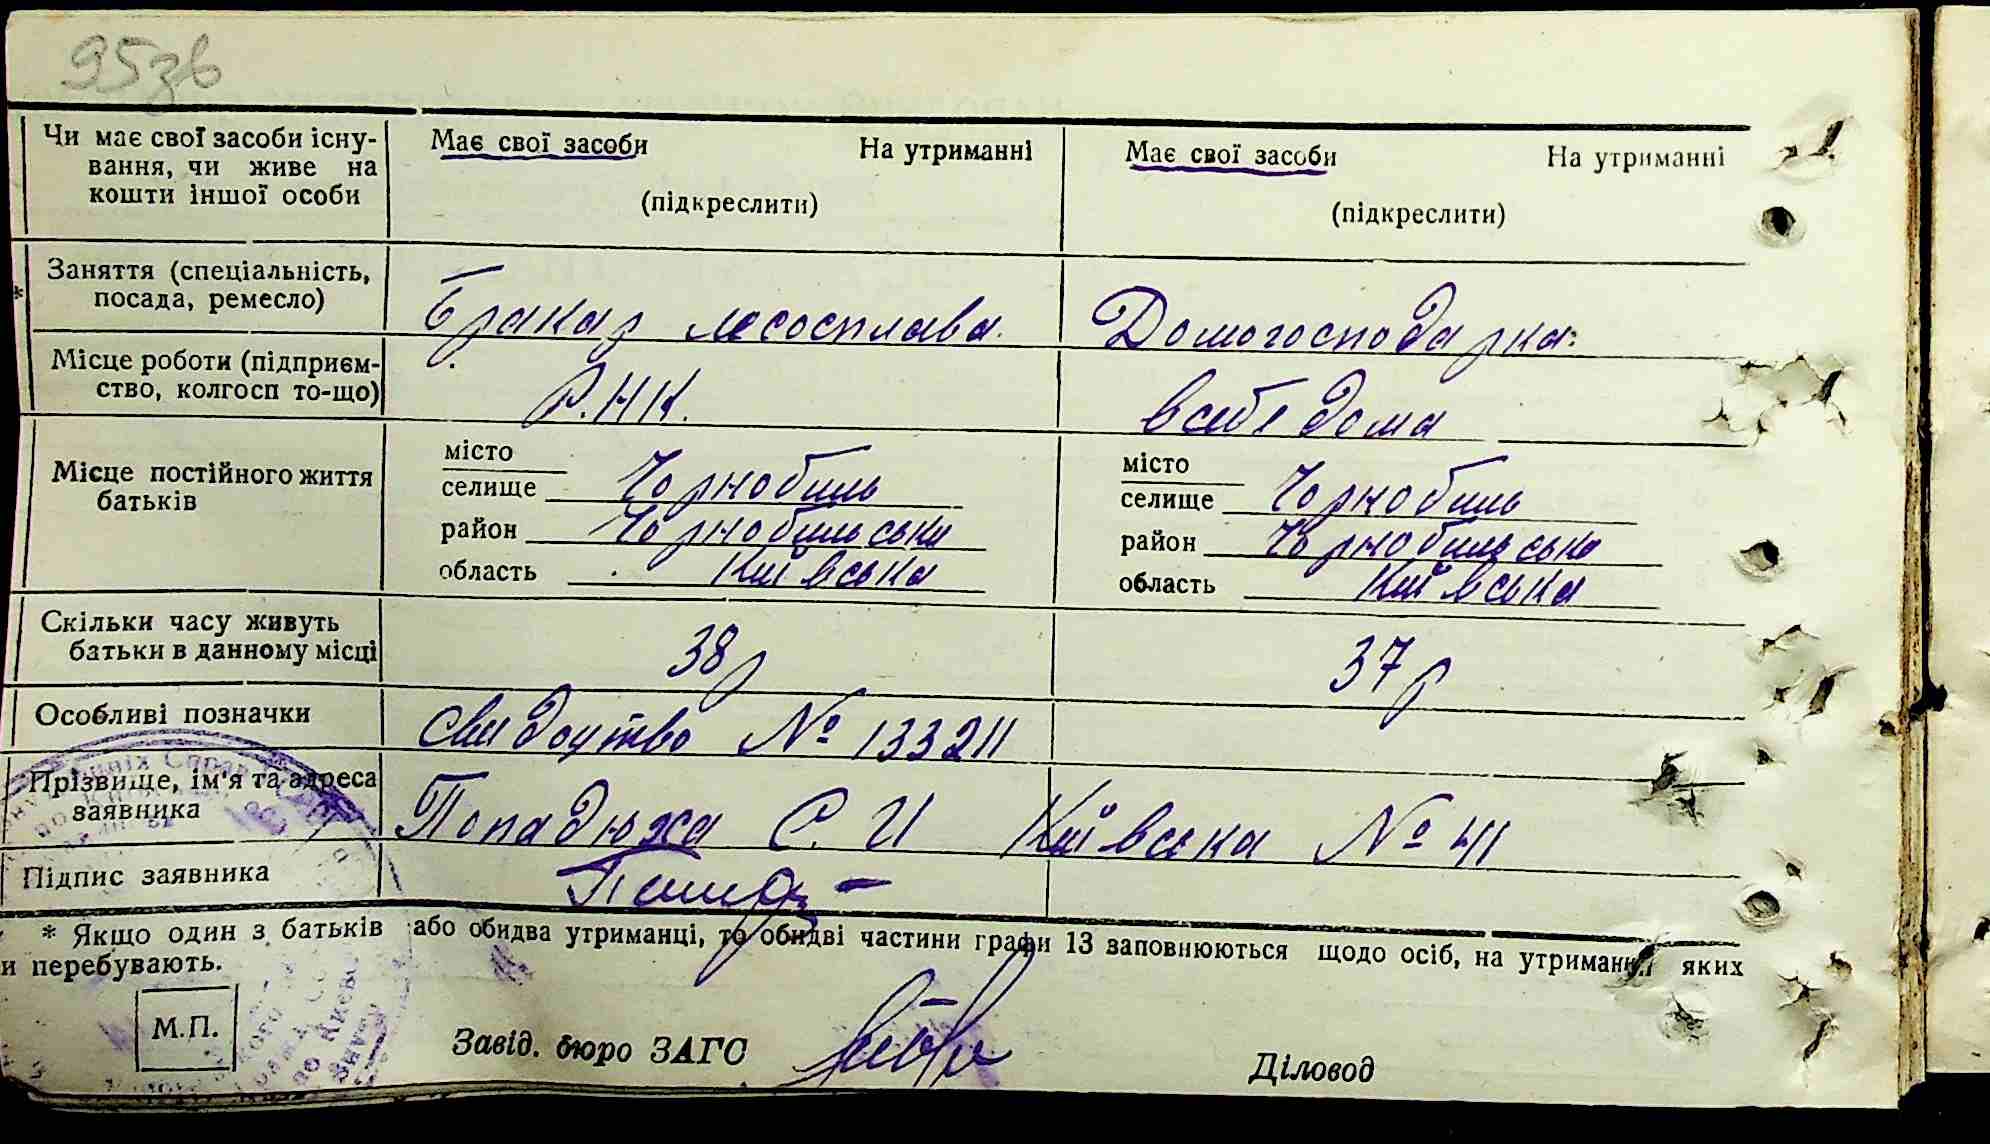 95зв
Чи має свої засоби існу-
вання, чи живе на
кошти іншої особи
Має свої засоби На утриманні
(підкреслити)
Має свої засоби На утриманні
(підкреслити)
* Заняття (спеціальність,
посада, ремесло)
Бракар лесосплава.
Домогосподарка.
Місце роботи (підприєм-
ство, колгосп то-що)
Р.Н.К.
в себе дома
Місце постійного життя
батьків
місто
селище Чорнобиль
район Чорнобильськи
область Київська
місто
селище Чорнобиль
район Чорнобильська
область Київська
Скільки часу живуть
батьки в данному місці
38 р
37 р
Особливі позначки
Свидоцтво № 133211
Прізвище, ім'я та адреса
заявника
Попадюха С. И Київська № 41
Підпис заявника
* Якщо один з батьків або обидва утриманці, то обидві частини графи 13 заповнюються щодо осіб, на утриманні яких
и перебувають.
М.П.
Завід. бюро ЗАГС
Діловод